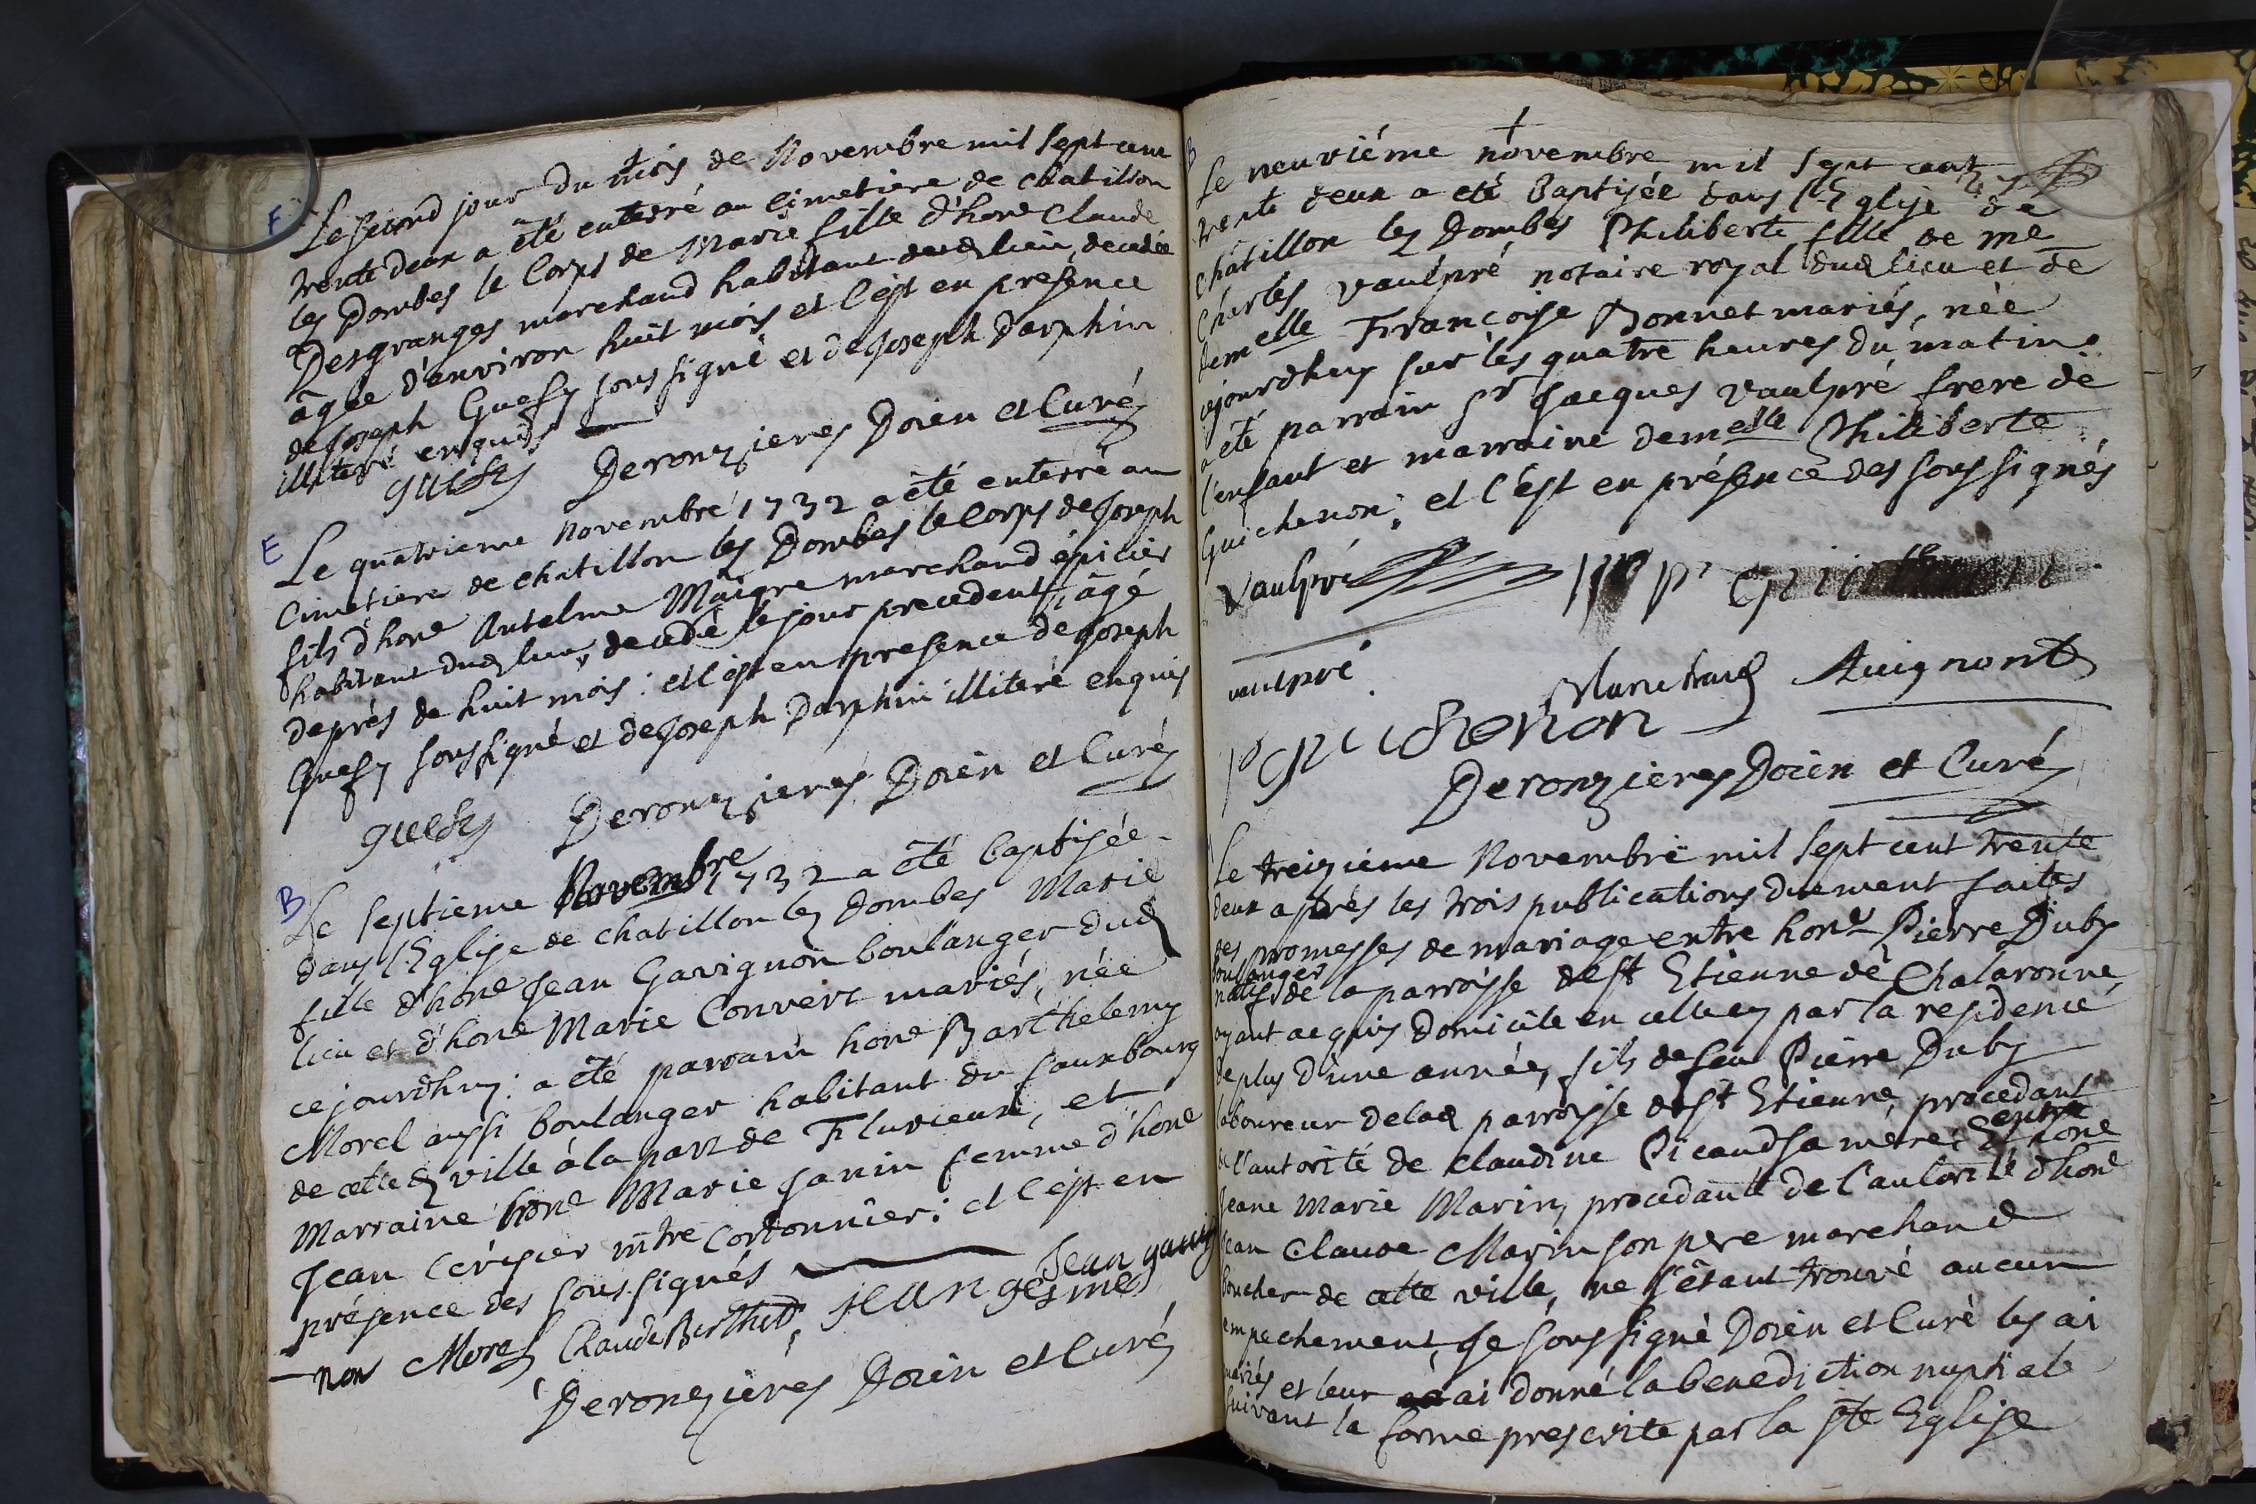 E
Le second jour du mois de Novembre mil sept cent
trente deux a été enterré au Cimetiere de chatillon
les Dombes le Corps de Marie fille d'hone Claude
Desgranges marchand habitant dud lieu, decedée
âgée d'environ huit mois et c'est en presence
de Joseph Guesy soussigné et de Joseph Darphin
illiteré enquis
guesy Deronzieres Doien et Curé
E
Le quatrieme novembre 1732 a été enterré au
Cimetiere de chatillon les Dombes le Corps de Joseph
fils d'hone Antelme Maigre marchand épicier
habitant dud lieu, decedé le jour precedent, âgé
de près de huit mois : et c'est en presence de Joseph
Guesy soussigné et de Joseph Darphin illiteré enquis
guesy Deronzieres Doien et Curé
B
Le septieme Novembre 1732 a été baptisée
dans l'Eglise de chatillon les Dombes Marie
fille d'hone Jean Gavignon boulanger dud
lieu et d'hone Marie Convert mariés, née
cejourdhuy : a été parrain hone Barthelemy
Morel aussi boulanger habitant du fauxbourg
de cette d ville à la part de Flurieux, et
Marraine hone Marie Janin femme d'hone
Jean Cérisier mtre Cordonnier : et c'est en
présence des soussignés
Jean gavig
non Morel Claude Berthet jean gesmes
Deronzieres Doien et Curé
B
Le neuviéme novembre mil sept cent
trente deux a été Baptisée dans l'Eglise de
Châtillon les Dombes Philiberte fille de me
Charles Vaulpré notaire royal dud lieu et de
demelle Françoise Bonnet mariés, née
cejourdhuy sur les quatre heures du matin.
a été parrain sr Jacques Vaulpré frere de
l'enfant et marraine demelle Philiberte
Guichenon ; et c'est en présence des soussignés
Vaulpré
vaulpré Marchand Auignont
p guichenon
Deronzieres Doien et Curé
Le treizieme Novembre mil sept cent trente
deux après les trois publications duement faites
des promesses de mariage entre hone Pierre Duby
boulanger
natif de la parroisse de st Etienne de Chalaronne
ayant acquis domicile en celle cy par la residence
de plus d'une année, fils de feu Pierre Duby
laboureur de lad parroisse de st Etienne, procedant
de l'autorité de Claudine Picaud sa mere ; Et hone
Jeane Marie Marin, procedante de l'autorité d'hone
Jean Claude Marin son pere marchand
boucher de cette ville, ne s'étant trouvé aucun
empechement, je soussigné Doien et Curé les ai
mariés et leur ai donné la benediction nuptiale
suivant la forme prescrite par la ste Eglise